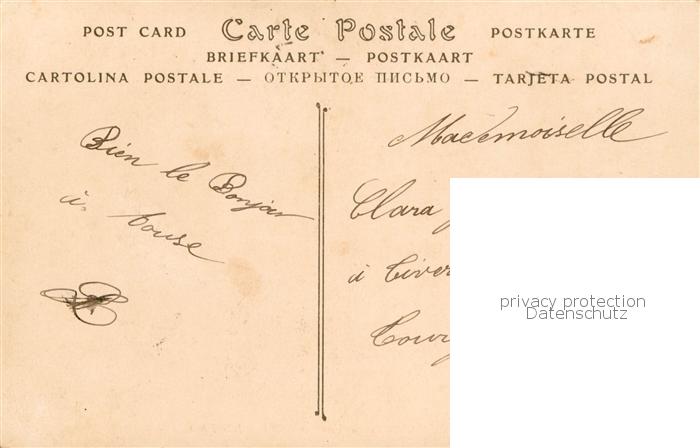 POST CARD Carte Postale POSTKARTE
BRIEFKAART — POSTKAART
CARTOLINA POSTALE — ОТКРЫТОЕ ПИСЬМО — TARJETA POSTAL
Bien le Bonjour
à touse
Mademoiselle
Clara
à
privacy protection
Datenschutz